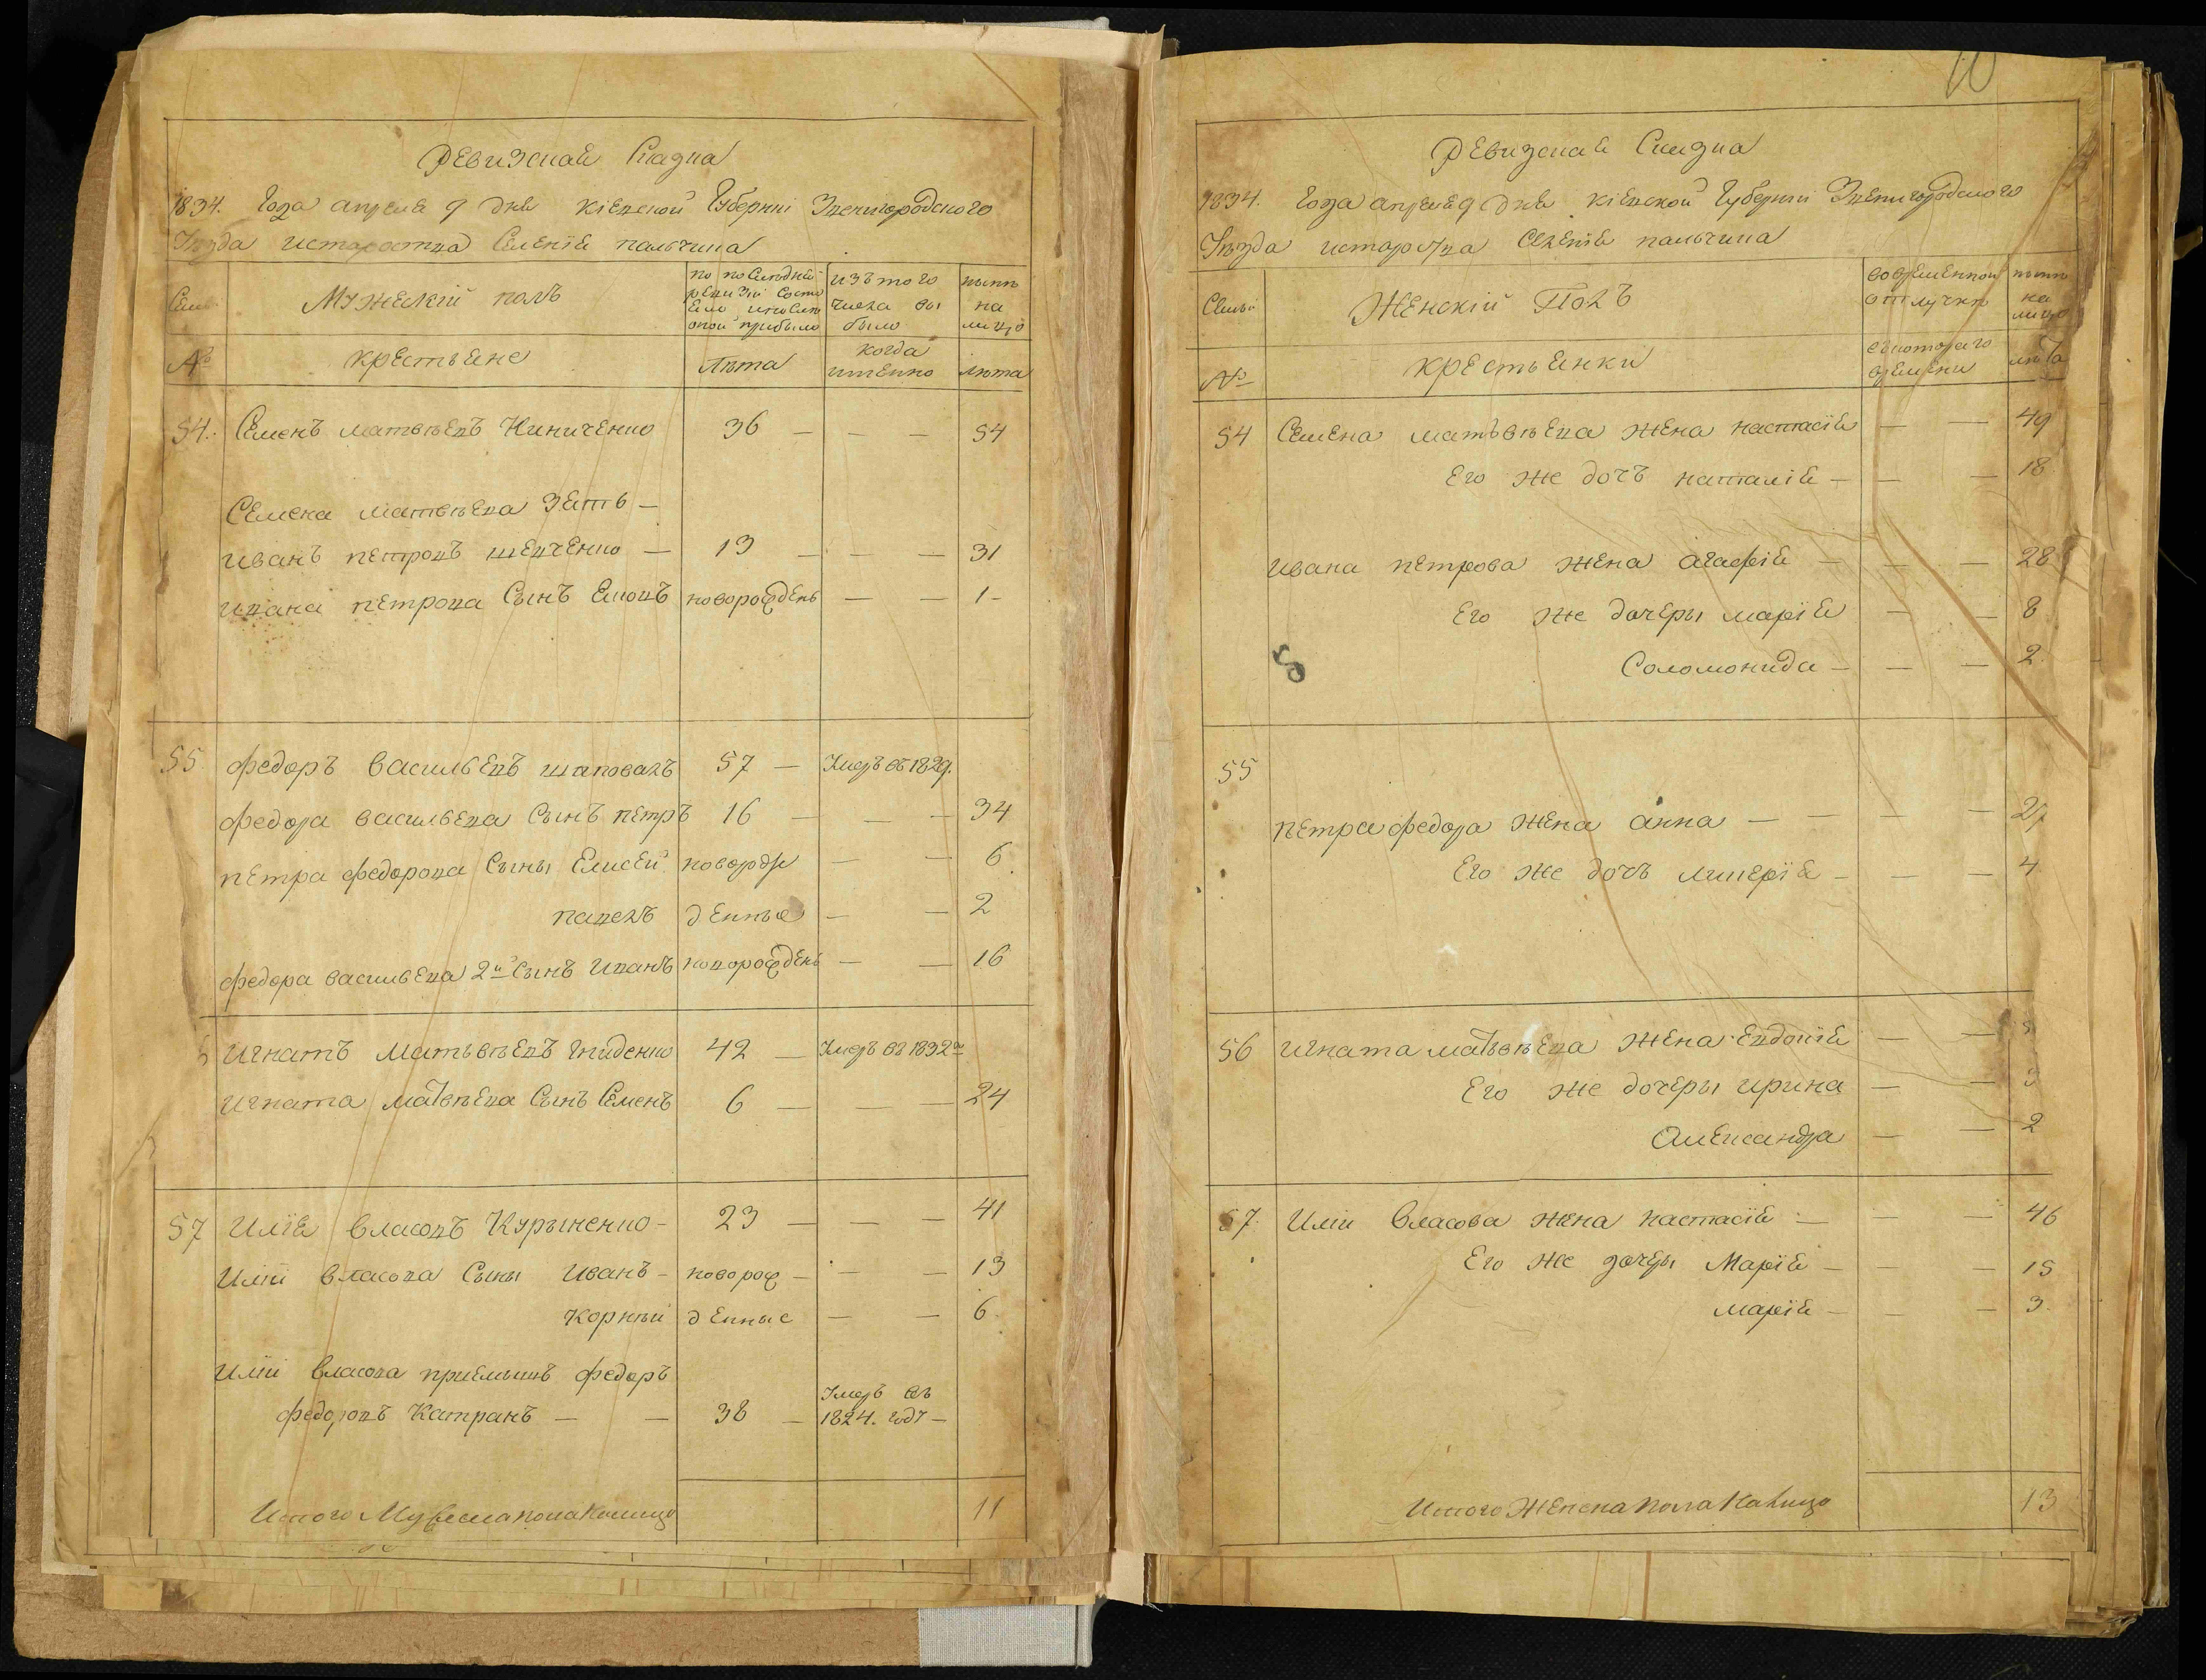 Ревизская Сказка
1834. Года апреля 9 дня Кіевской Губерніи Звенигородского
Уѣзда и староства Селенія пальчика
Семьи
Мужескій полъ
по последней ревизіи состояло и после оной прибыло
изъ того числа выбыло
нынѣ на лицо
№
крестьяне
лѣта
когда именно
лѣта
54. Семенъ матвѣевъ Книченко 36 — — — 54
Семена матвѣева Зять —
иванъ петровъ шевченко — 13 — — — 31
ивана петрова Сынъ новорожденъ — — 1 -
55 федоръ васильевъ шаповалъ 57 — Умеръ въ 1829.
федора васильева Сынъ петръ 16 — — — 34
петра федорова Сыны Елисей новорож — — 6
павелъ денные — — 2
федора васильева 2й Сынъ иванъ новорожденъ — — 16
игнатъ матьвѣевъ 42 — Умеръ въ 1832м
игната матвѣева Сынъ Семенъ 6 — — — 24
57 илія власовъ Курыненко - 23 — — — 41
иліи власова Сыны иванъ - новорож — — — 13
корнѣй денные — — 6
иліи власова приемышъ федоръ
федоровъ Катранъ — — 38 — Умеръ въ 1824. году —
Итого Мужеска пола налицо 11
10
Ревизская Сказка
1834. Года апреля 9 дня Кіевской Губерніи Звенигородского
Уѣзда и староства Селенія пальчика
Семьи
Женскій Полъ
во временной отлучкѣ
нынѣ на лицо
№
крестьянки
съ котораго времени
лѣта
54 Семена матьвѣева жена настасія — — 49
Его же дочъ наталія — — — 18
ивана петрова жена агафія — — — 28
Его же дочеры марія — — 8
Соломонида — — — 2
55
петра федора жена анна — — — —
Его же дочъ — — — 4
56 игната матьвѣева жена Евдокія — —
Его же дочеры ирина — —
Александра — — 2
57. иліи власова жена настасія — — — 46
Его же дочеры Марія — — — 15
марія — — — 3
Итого Женска пола на лицо 13